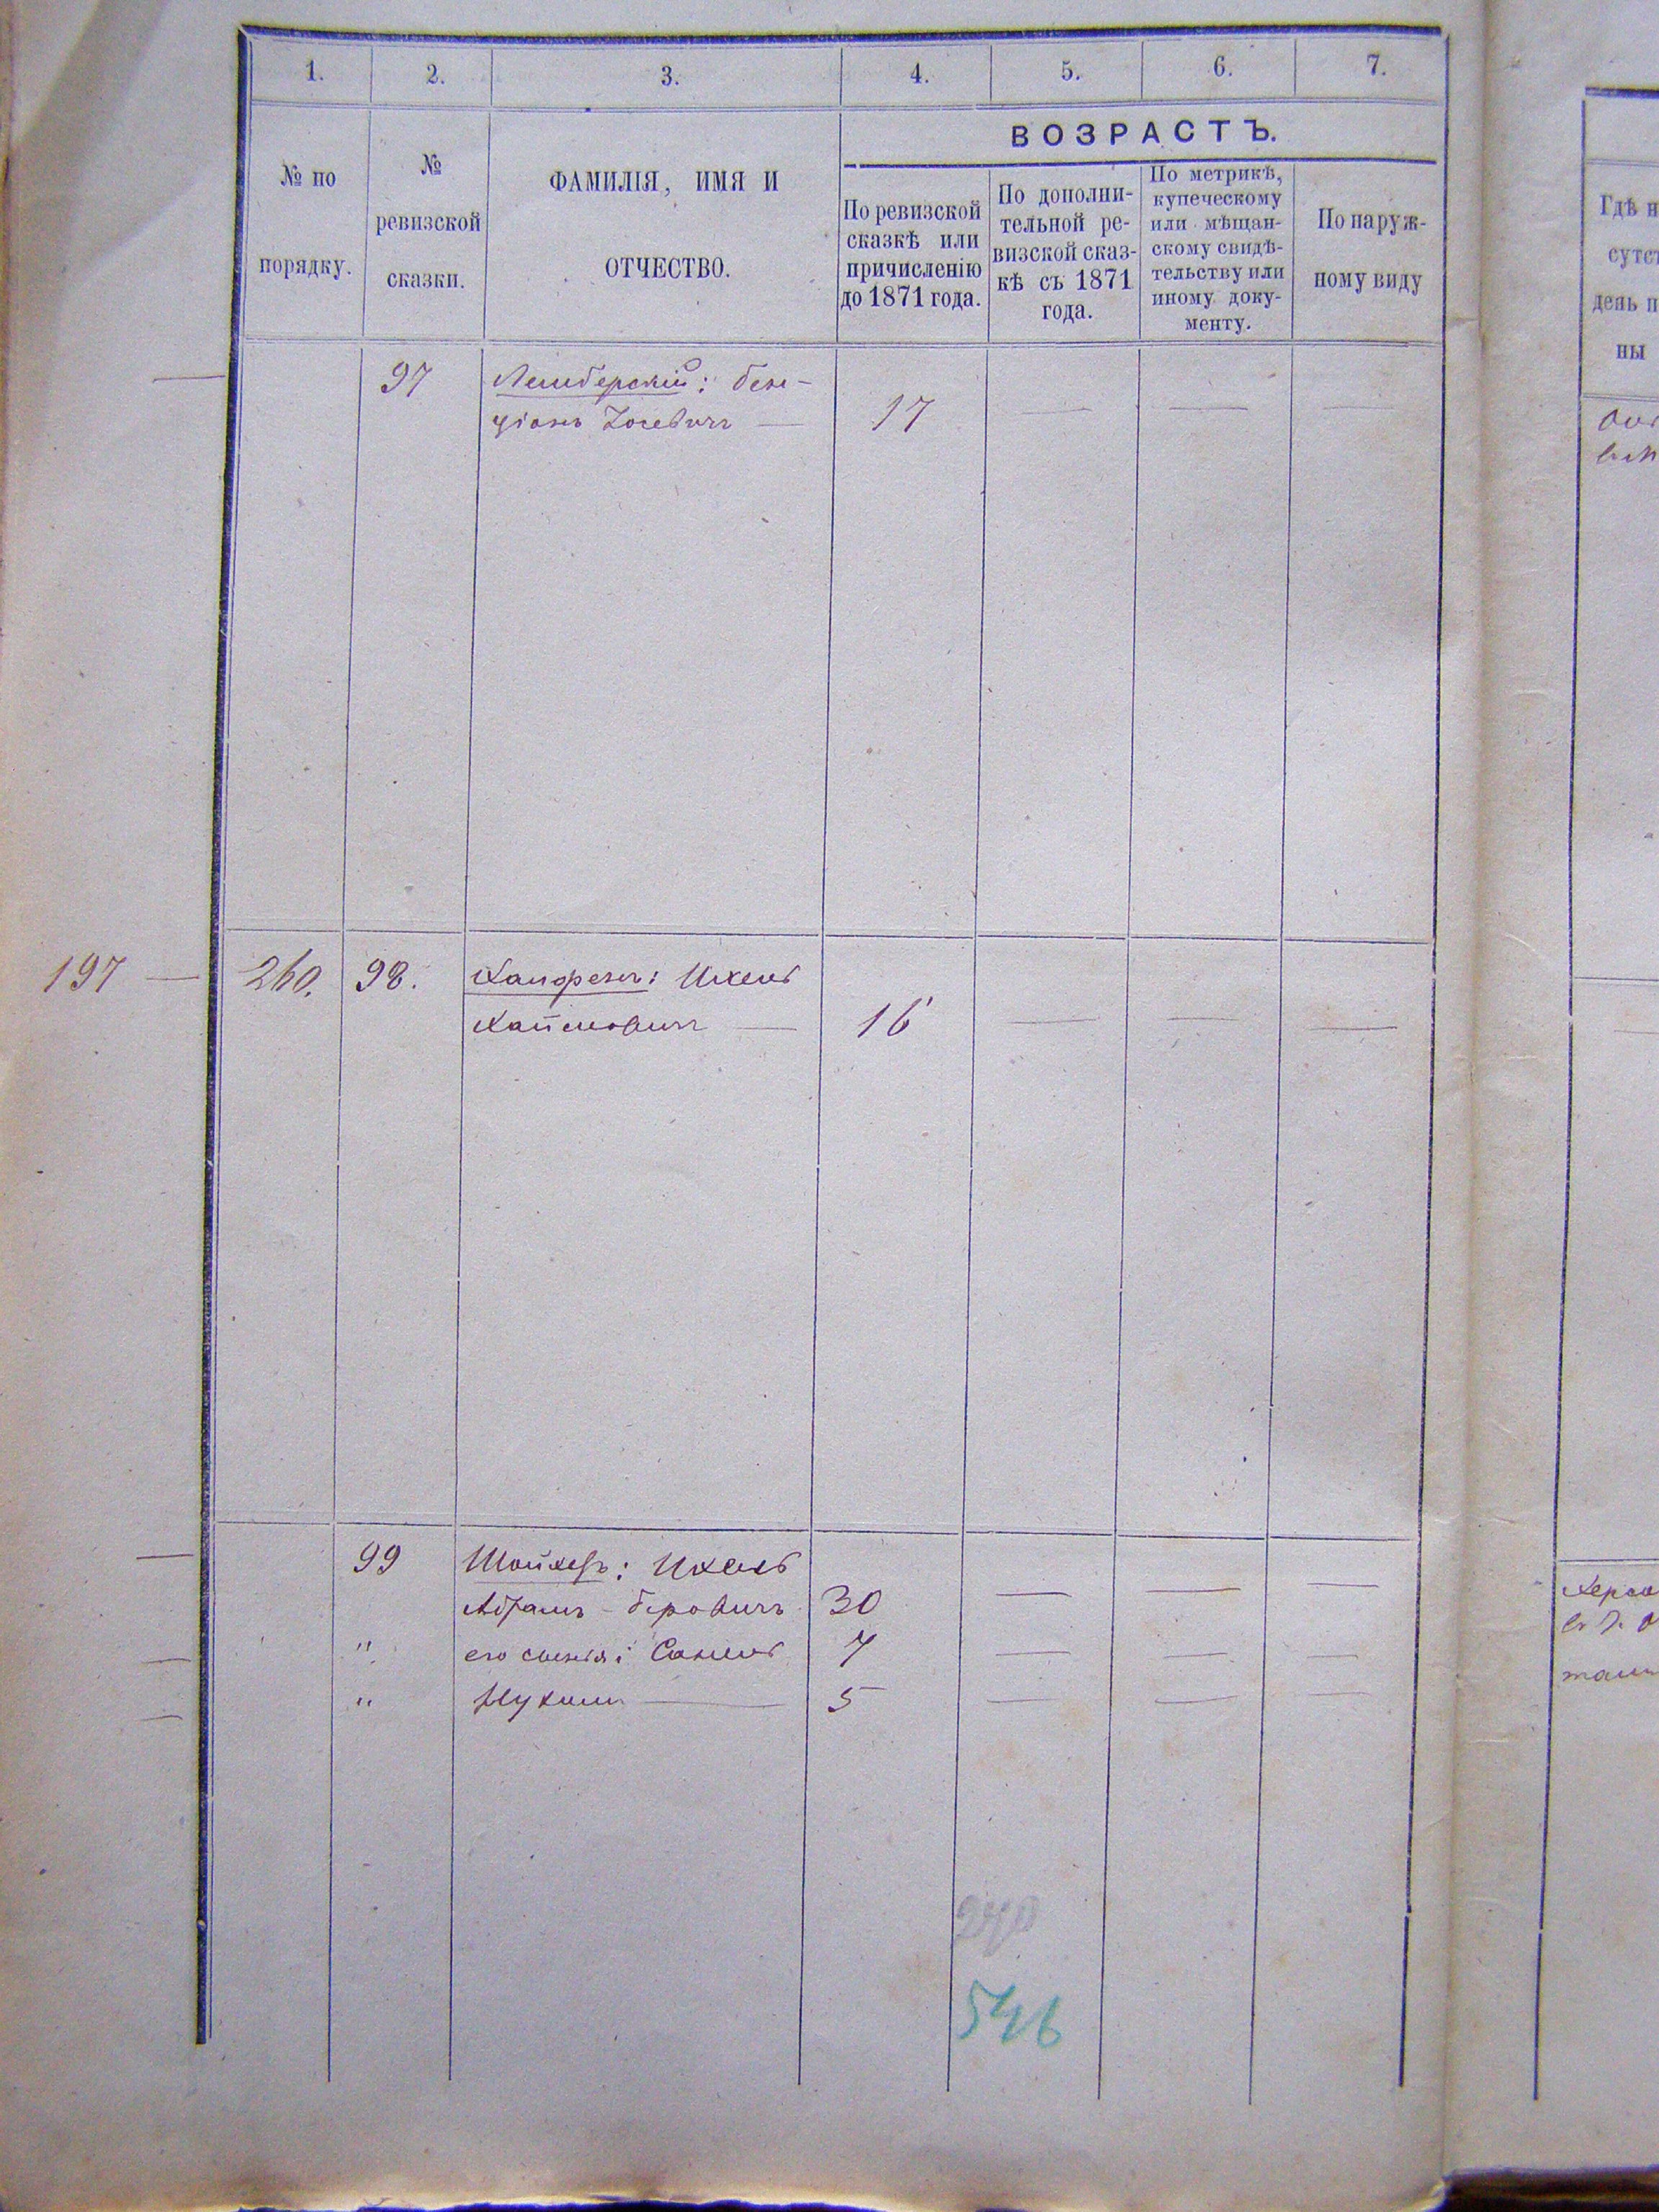 1. 2. 3. 4. 5. 6. 7.
№ по порядку.
№ ревизской сказки.
ФАМИЛІЯ, ИМЯ И
ОТЧЕСТВО.
ВОЗРАСТЪ.
По ревизской
сказкѣ или
причисленію
до 1871 года.
По дополни-
тельной ре-
визской сказ-
кѣ съ 1871
года.
По метрикѣ,
купеческому
или мѣщан-
скому свидѣ-
тельству или
иному доку-
менту.
По наруж-
ному виду
Гдѣ н
сутст
день п
ны
97 Лемберскій: Бен-
ціонъ Іосевичъ — 17 — — —
197 — 260. 98. Ханфенъ: Ихель
Хаимовичъ — 16 — — —
99 Шойхеръ: Ихель
Абрамъ-Беровичъ 30 — — —
" его сыновя: Санель 7 — — —
" Нухимъ — 5 — — —
270
546